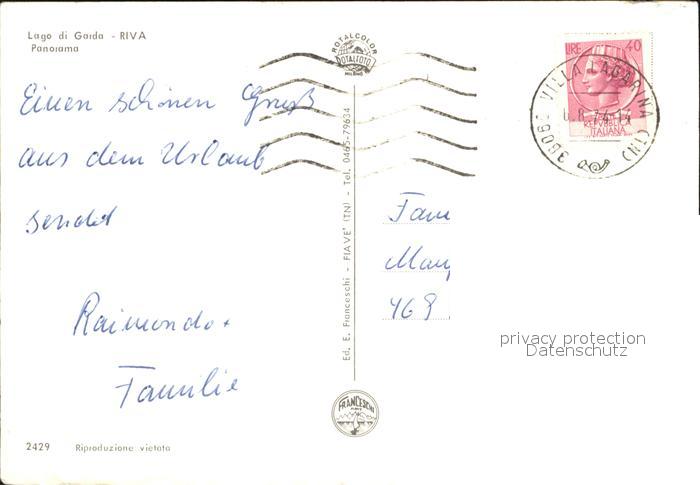 Lago di Garda - RIVA
Panorama
Einen schönen Gruß
aus dem Urlaub
sendet
Raimondo +
Familie
2429 Riproduzione vietata
ROTALCOLOR
ROTALFOTO
MILANO
Ed. E. Franceschi - FIAVE' (TN) - Tel. 0465-79634
FRANCESCHI
FIAVE
LIRE 40
REPUBBLICA
ITALIANA
38060 VILLA LAGARINA (TN)
Fam
May
469
privacy protection
Datenschutz